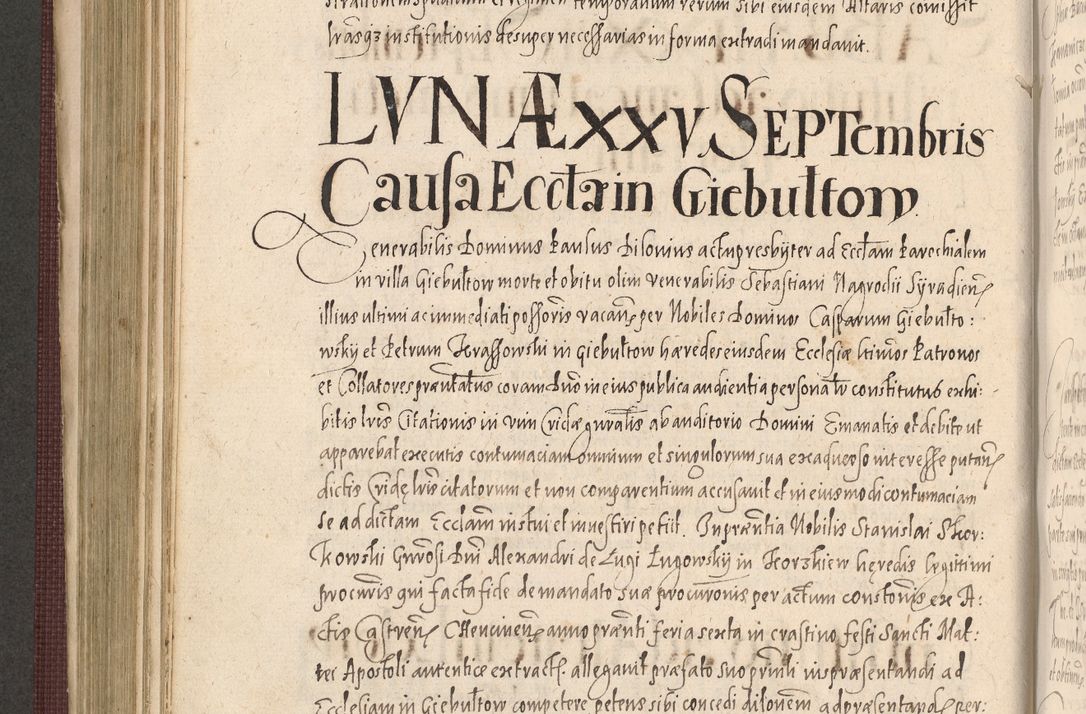 strationem spiritualium et regimen temporalium rerum sibi eiusdem Altaris comissit
lrasq3 institutionis desuper necessarias in forma extradi mandavit.
LVNÆ XXV SEPTembris
Causa Ecctæ in Giebułtow.
Venerabilis Dominus Paulus Pilovius actu presbyter ad Ecctam Parochialem
in villa Giebułtow morte et obitu olim venerabilis Sebastiani Nagrodii Syradien
illius ultimi ac immediati possoris vacan per Nobiles Dominos Casparum Giebułto:
wsky et Petrum Krassowski in Giebułtow hæredes eiusdem Ecclesiæ ltimos Patronos
et Collatores præntatus coram Dno in eius publica audientia personatr constitutus exhi:
bitis lris Citationis in vim Cridæ gnralis ab auditorio Domini Emanatis et debite ut
apparebat executis contumaciam omnium et singulorum sua exadverso interesse putan
dictis Cridę lris citatorum et non comparentium accusavit et in eiusmodi contumaciam
se ad dictam Ecclam instui et investiri petiit. In præntia Nobilis Stanislai Skor:
kowski Gnrosi Dni Alexandri de Ługi Ługowsky in Korzkiew hęredis legittimi
procuris qui facta fide de mandato suæ procuronis per actum constonis ex A:
ctis Castren Chencinen anno prænti feria sexta in crastino festi Sancti Mat:
tei Apostoli autentice extract. allegavit præfato suo prinli ius præsentandi ad
Ecclesiam in Giebułtow competere petens sibi concedi dilonem ad præsentand per: